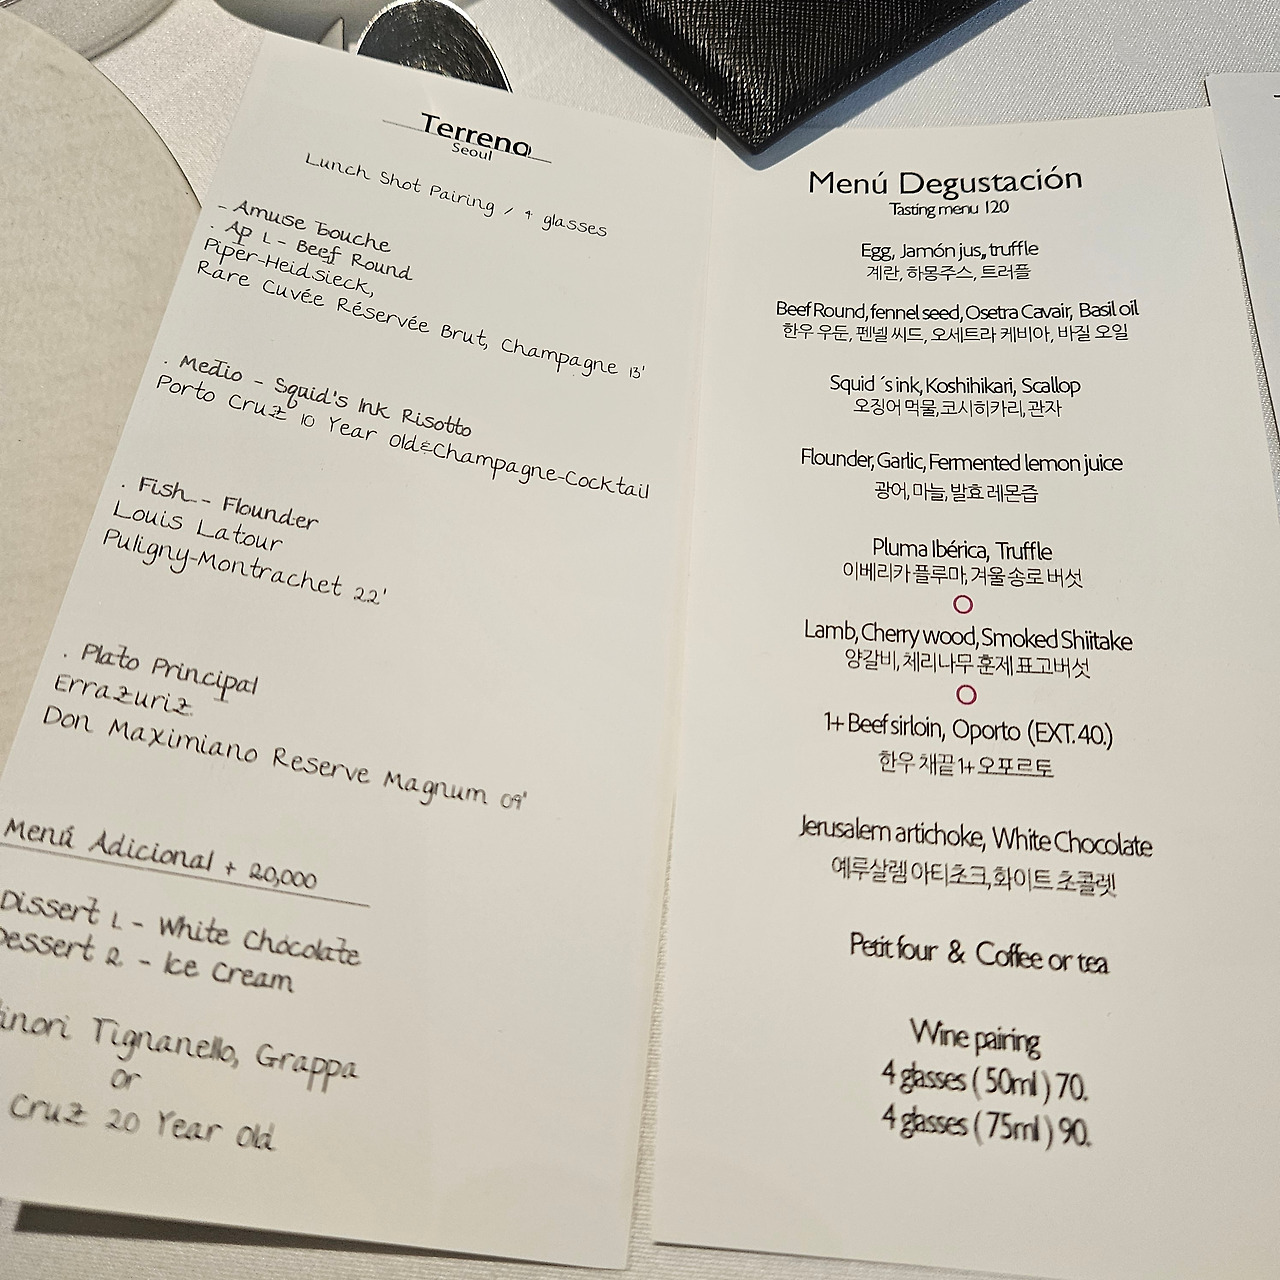 Terreno
Seoul
Lunch Shot Pairing / 4 glasses
- Amuse bouche
. Ap 1 - Beef Round
Piper-Heidsieck,
Rare Cuvée Réservée Brut, Champagne 13'
. Medio - Squid's Ink Risotto
Porto Cruz 10 Year Old&Champagne-Cocktail
. Fish - Flounder
Louis Latour
Puligny-Montrachet 22'
. Plato Principal
Errazuriz
Don Maximiano Reserve Magnum 09'
Menú Adicional + 20,000
Dissert 1 - White Chocolate
Dessert 2 - Ice Cream
Tignanello, Grappa
or
Cruz 20 Year Old
Menú Degustación
Tasting menu 120
Egg, Jamón jus, truffle
계란, 하몽주스, 트러플
Beef Round, fennel seed, Osetra Cavair, Basil oil
한우 우둔, 펜넬 씨드, 오세트라 케비아, 바질 오일
Squid ´s ink, Koshihikari, Scallop
오징어 먹물,코시히카리, 관자
Flounder, Garlic, Fermented lemon juice
광어, 마늘, 발효 레몬즙
Pluma Ibérica, Truffle
이베리카 플루마, 겨울 송로 버섯
Lamb, Cherry wood, Smoked Shiitake
양갈비, 체리나무 훈제 표고버섯
1+ Beef sirloin, Oporto (EXT. 40.)
한우 채끝 1+ 오포르토
Jerusalem artichoke, White Chocolate
예루살렘 아티초크, 화이트 초콜렛
Petit four & Coffee or tea
Wine pairing
4 glasses ( 50ml ) 70.
4 glasses ( 75ml ) 90.